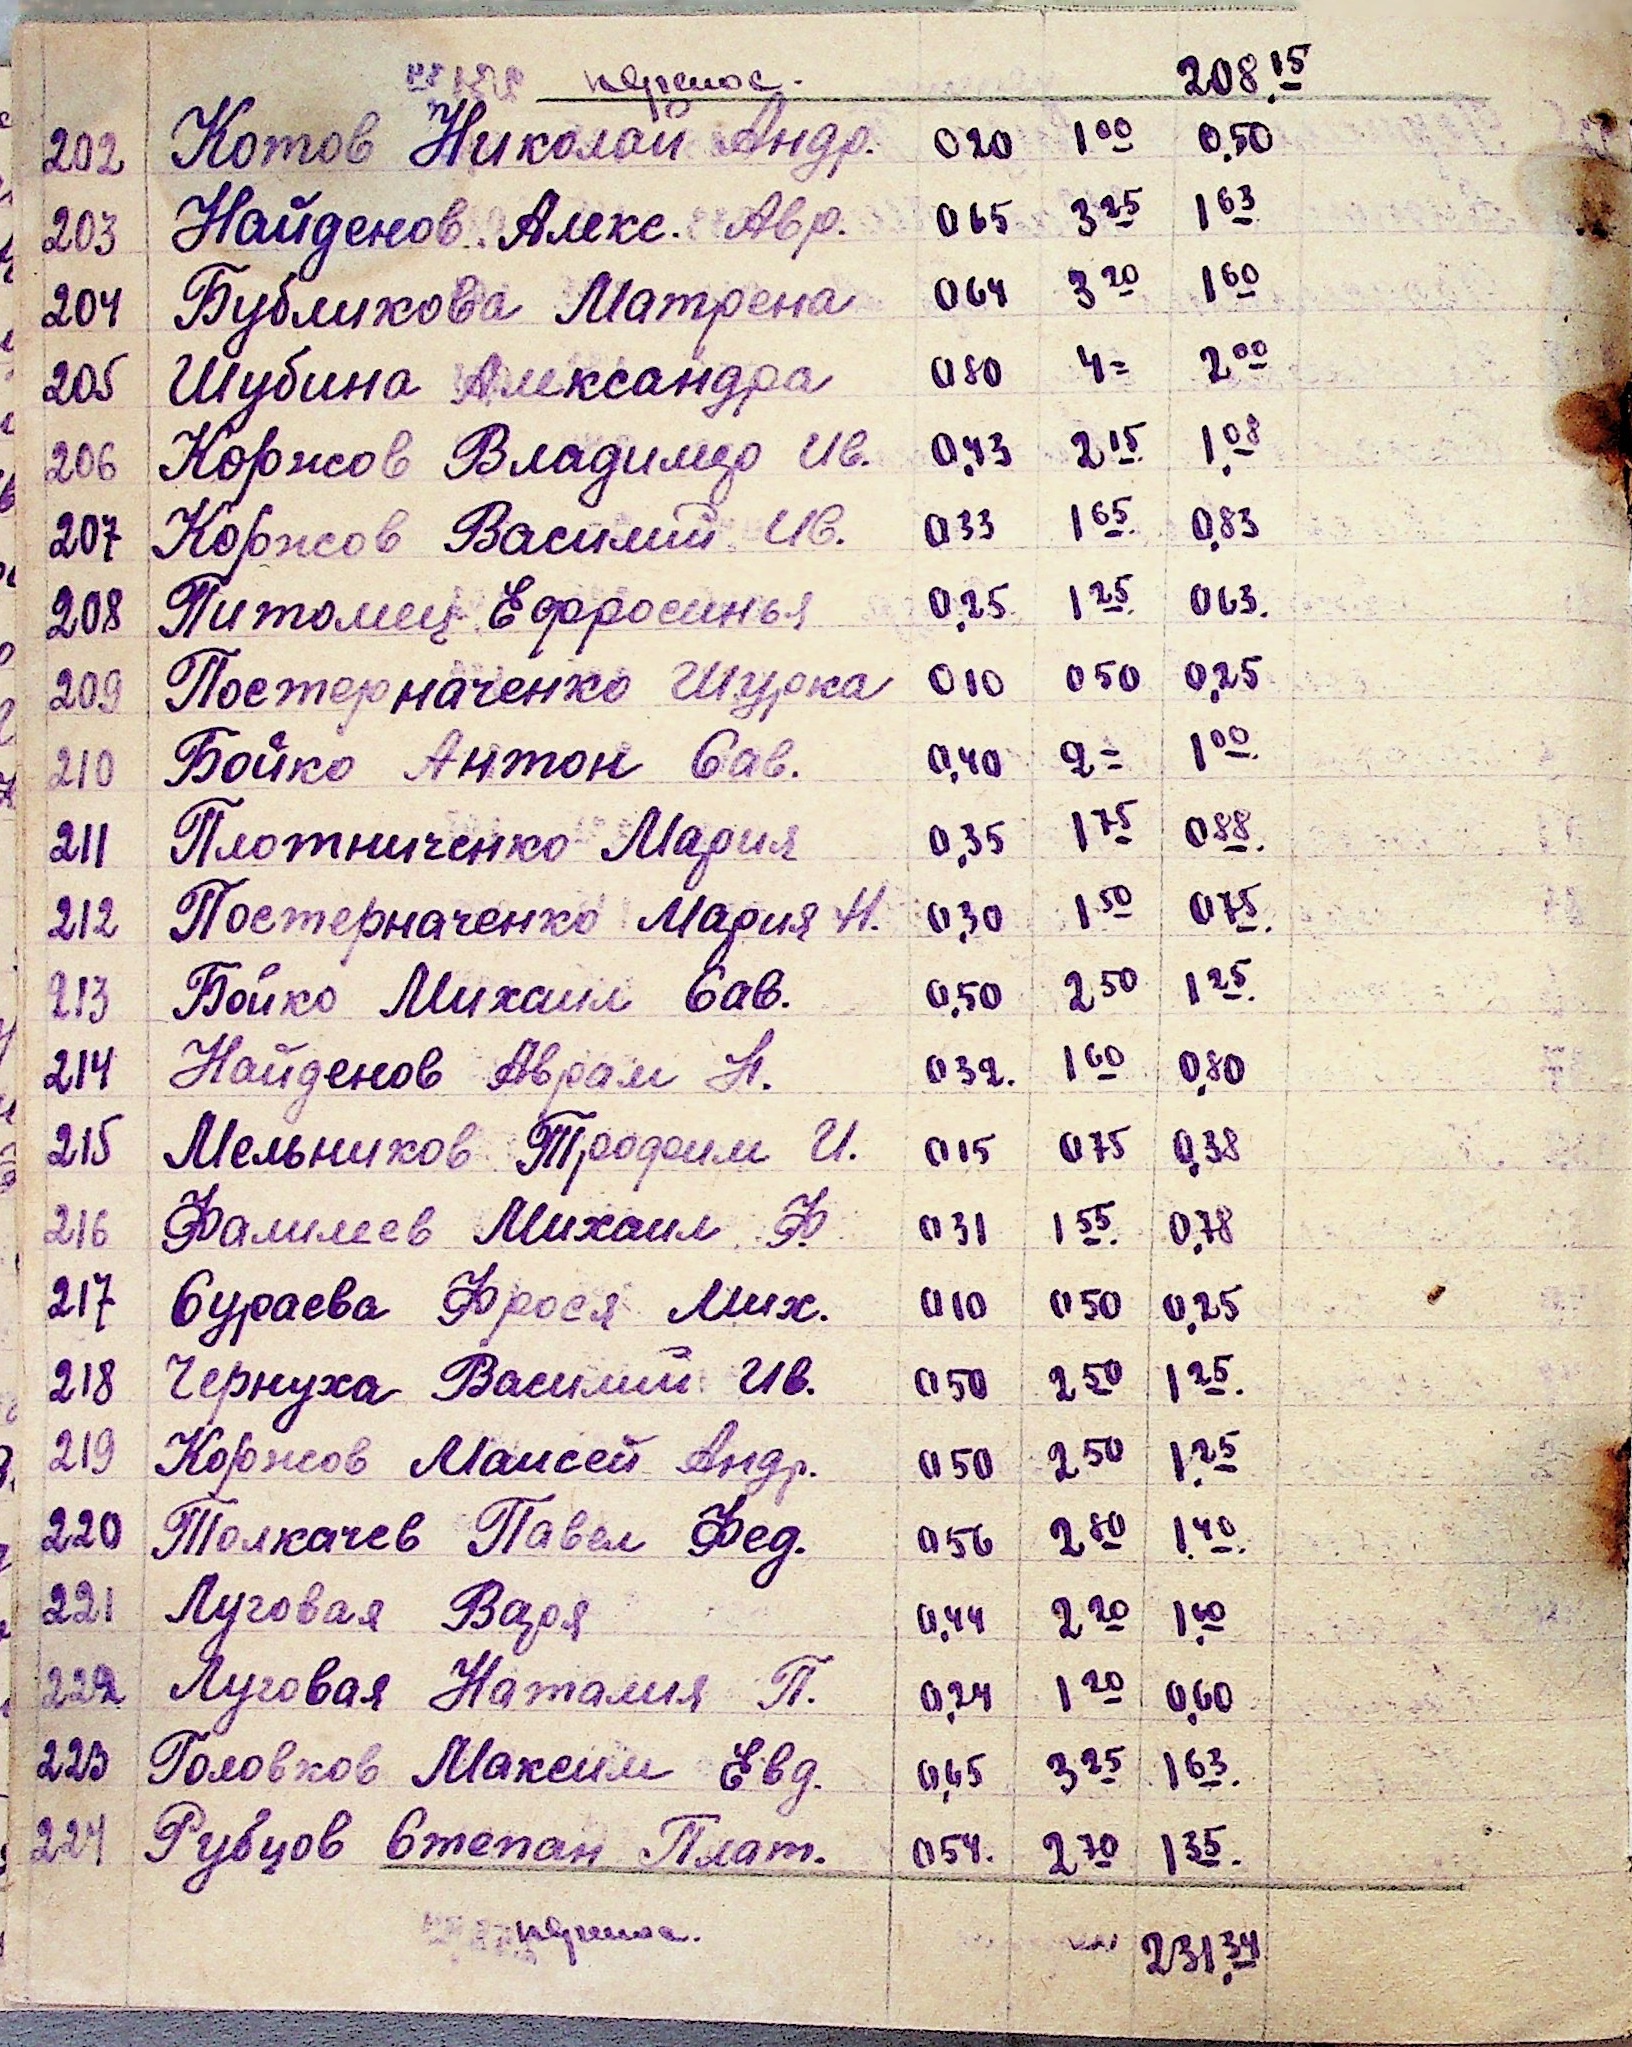 перенос. 208,15
202 Котов Николай Андр. 0 20 1 00 0,50
203 Найденов Алекс. Авр. 0 65 3 25 1 63
204 Бубликова Матрена 0 64 3 20 1 60
205 Шубина Александра 0 80 4 = 2 00
206 Коржов Владимир Ив. 0,43 2 15 1,08
207 Коржов Василий Ив. 0 33 1 65 0,83
208 Питомец Ефросинья 0,25 1 25 0 63.
209 Постерначенко Шурка 0 10 0 50 0,25
210 Бойко Антон Сав. 0,40 2 = 1 00
211 Плотниченко Мария 0,35 1 75 0 88.
212 Постерначенко Мария Н. 0,30 1 50 0 75.
213 Бойко Михаил Сав. 0,50 2 50 1 25.
214 Найденов Аврам Н. 0 32. 1 60 0,80
215 Мельников Трофим И. 0 15 0 75 0,38
216 Фалилеев Михаил Ф. 0 31 1 55. 0,78
217 Сураева Фрося Мих. 0 10 0 50 0,25
218 Чернуха Василий Ив. 0 50 2 50 1 25.
219 Коржов Маисей Андр. 0 50 2 50 1,25
220 Толкачев Павел Фед. 0 56 2 80 1.40.
221 Луговая Варя 0,44 2 20 1,10
222 Луговая Наталия П. 0,24 1 20 0,60
223 Головков Максим Евд. 0,65 3 25 1 63.
224 Рубцов Степан Плат. 0 54. 2 70 1 35.
перенос. 231,34